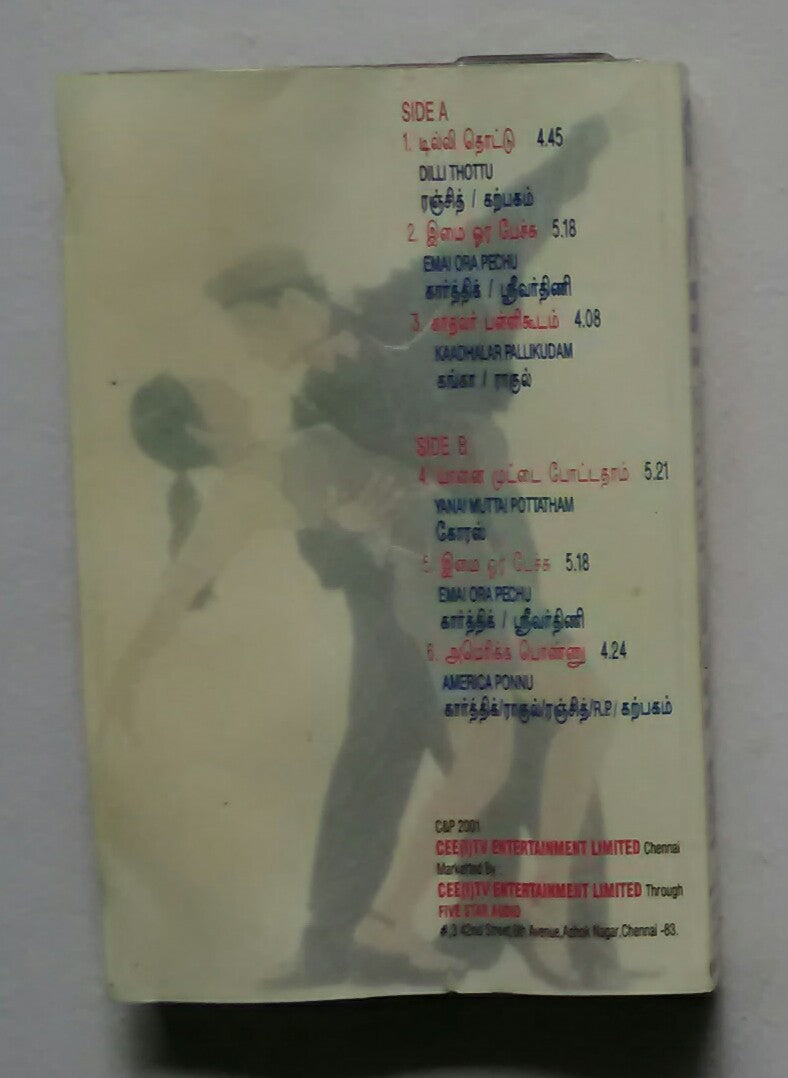 SIDE A
1. டில்லி தொட்டு 4.45
DILLI THOTTU
ரஞ்சித் / கற்பகம்
2. இமை ஓர பேச்சு 5.18
EMAI ORA PECHU
கார்த்திக் / ஸ்ரீவர்தினி
3. காதலர் பள்ளிகூடம் 4.08
KAADHALAR PALLIKUDAM
கங்கா / ராகுல்
SIDE B
4. யானை முட்டை போட்டதாம் 5.21
YANAI MUTTAI POTTATHAM
கோரஸ்
5. இமை ஓர பேச்சு 5.18
EMAI ORA PECHU
கார்த்திக் / ஸ்ரீவர்தினி
6. அமெரிக்க பொண்ணு 4.24
AMERICA PONNU
கார்த்திக்/ராகுல்/ரஞ்சித்/R.P./ கற்பகம்
C&P 2001
CEE(I)TV ENTERTAINMENT LIMITED Chennai
Marketted By :
CEE(I)TV ENTERTAINMENT LIMITED Through
FIVE STAR AUDIO
#,3 42nd Street,8th Avenue,Ashok Nagar,Chennai -83.